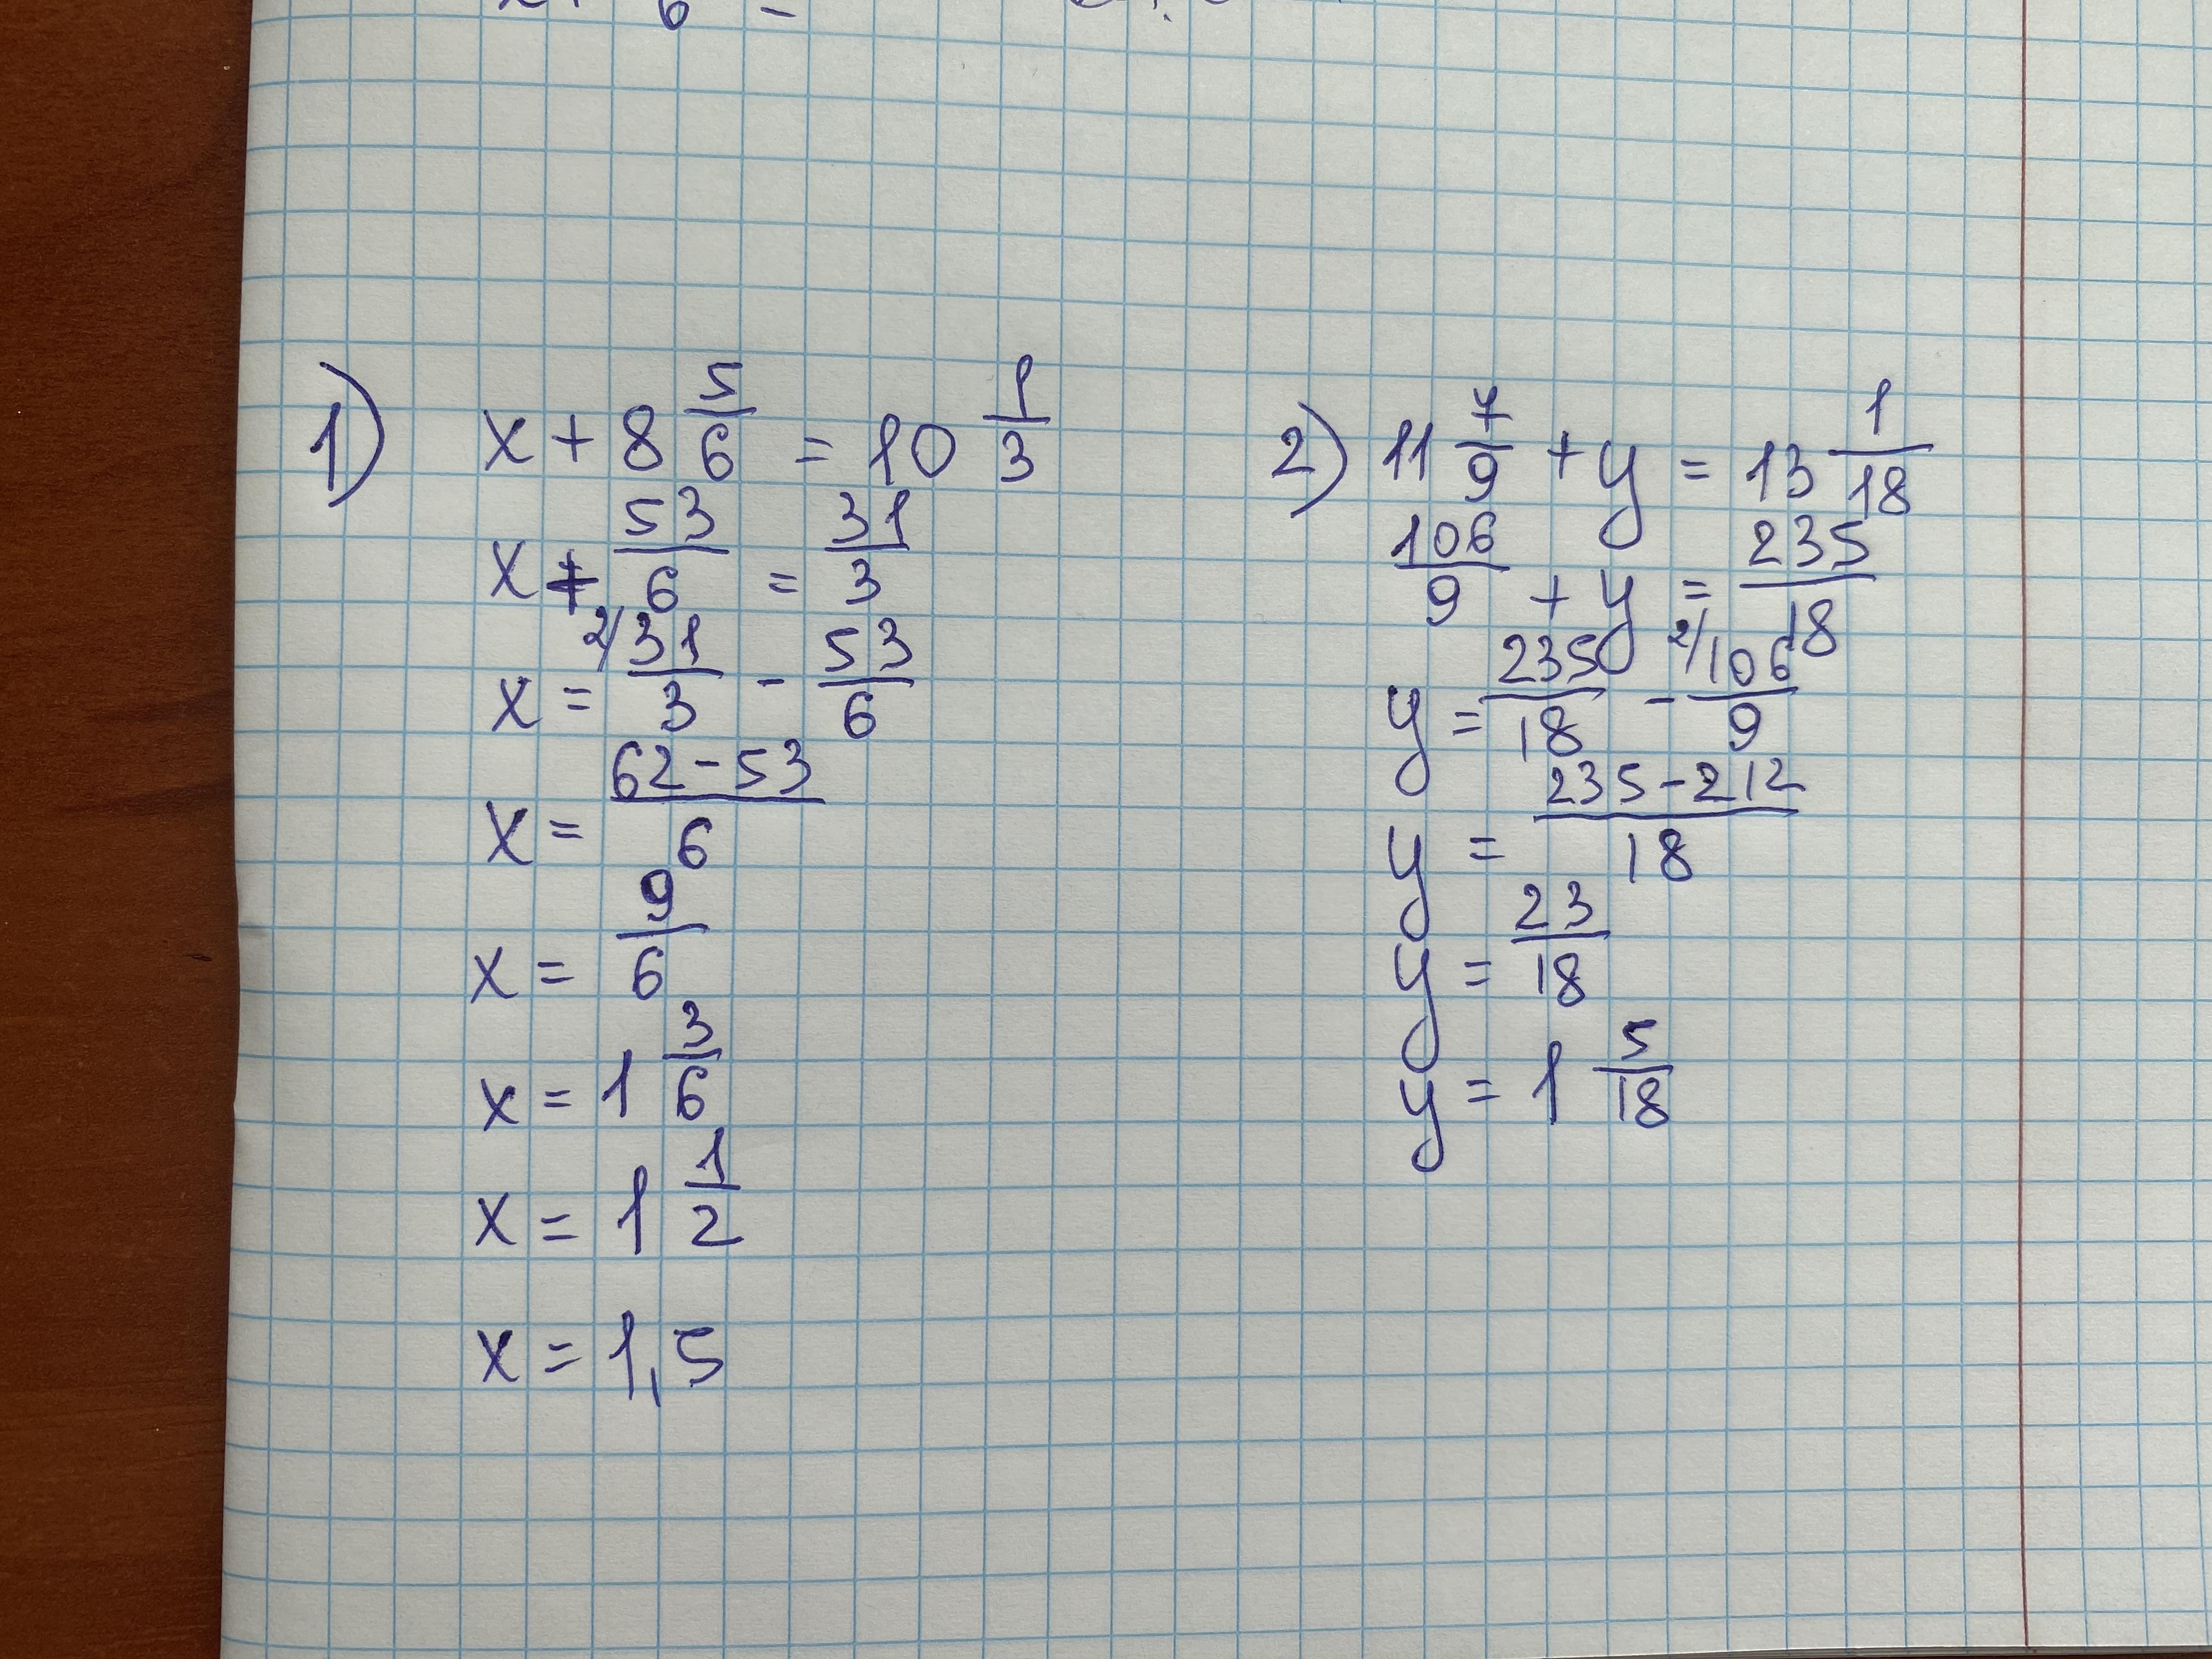 1) x + 8 5/6 = 10 1/3
x + 53/6 = 31/3
x = 2/ 31/3 - 53/6
x = (62 - 53)/6
x = 9/6
x = 1 3/6
x = 1 1/2
x = 1,5
2) 11 7/9 + y = 13 1/18
106/9 + y = 235/18
y = 235/18 - 2/ 106/9
y = (235 - 212)/18
y = 23/18
y = 1 5/18